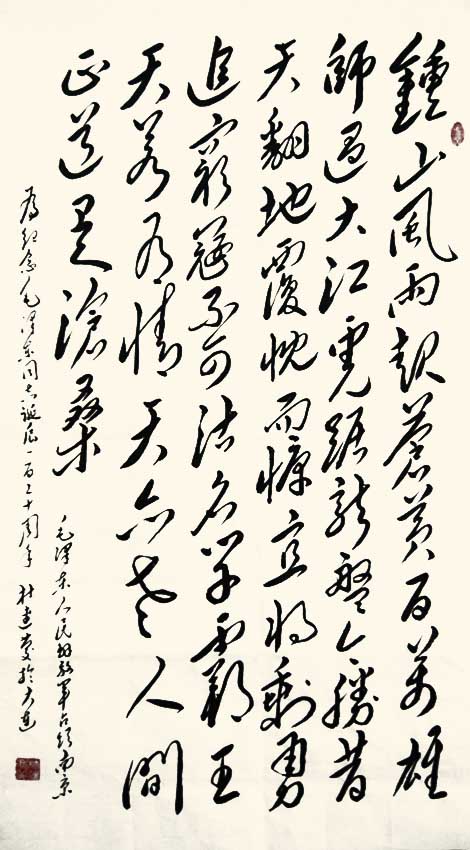 鍾山風雨起蒼黃百萬雄
師過大江虎踞龍盤今勝昔
天翻地覆慨而慷宜將剩勇
追窮寇不可沽名學霸王
天若有情天亦老人間
正道是滄桑
毛澤東人民解放軍占領南京
為紀念毛澤東同志誕辰一百二十周年 於大連